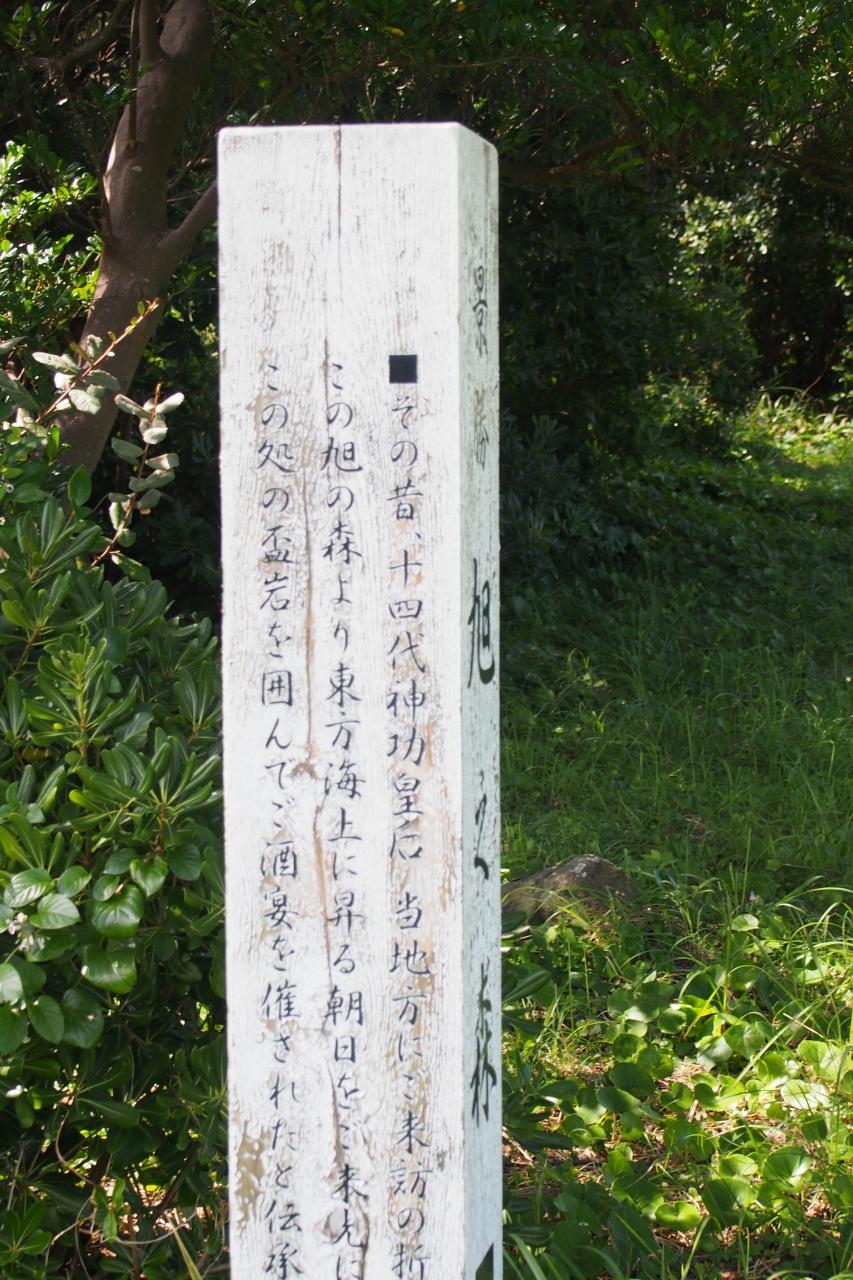 ■その昔、十四代神功皇后 当地方にご来訪の折
この旭の森より東方海上に昇る朝日をご来光に
この処の盃岩を囲んでご酒宴を催されたと伝承
景勝 旭之森